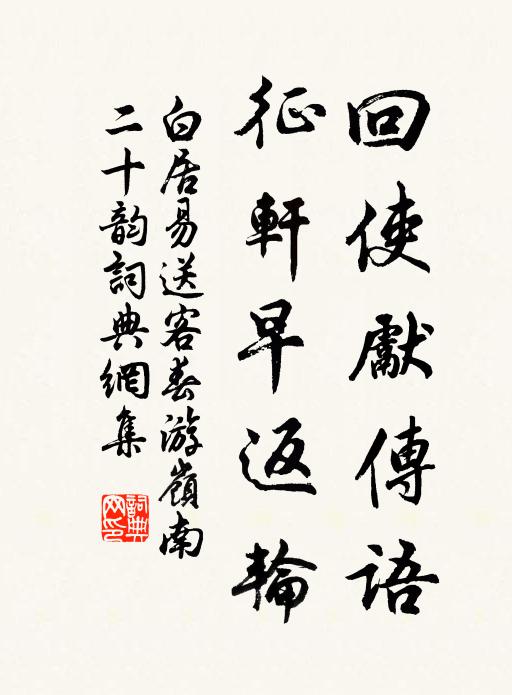 回使獻傳語
征軒早返輪
白居易送客春游嶺南
二十韵詞典網集
詞典
网印